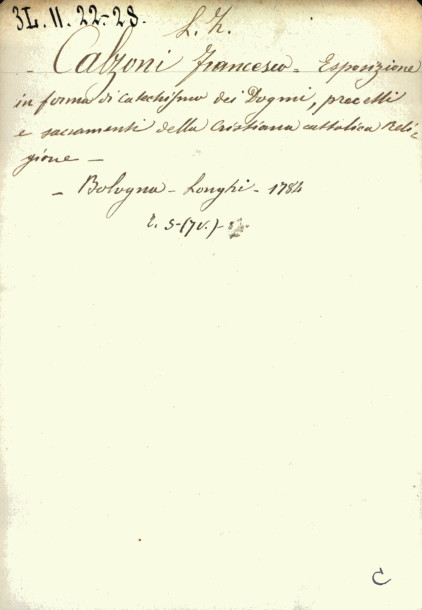 3L. 11. 22-28.
L. h.
- Calzoni Francesco - Esposizione
in forma di Catechismo dei Dogmi, precetti
e sacramenti della Cristiana cattolica Reli-
gione -
- Bologna - Longhi - 1784
t. 5-(7v.)-
C